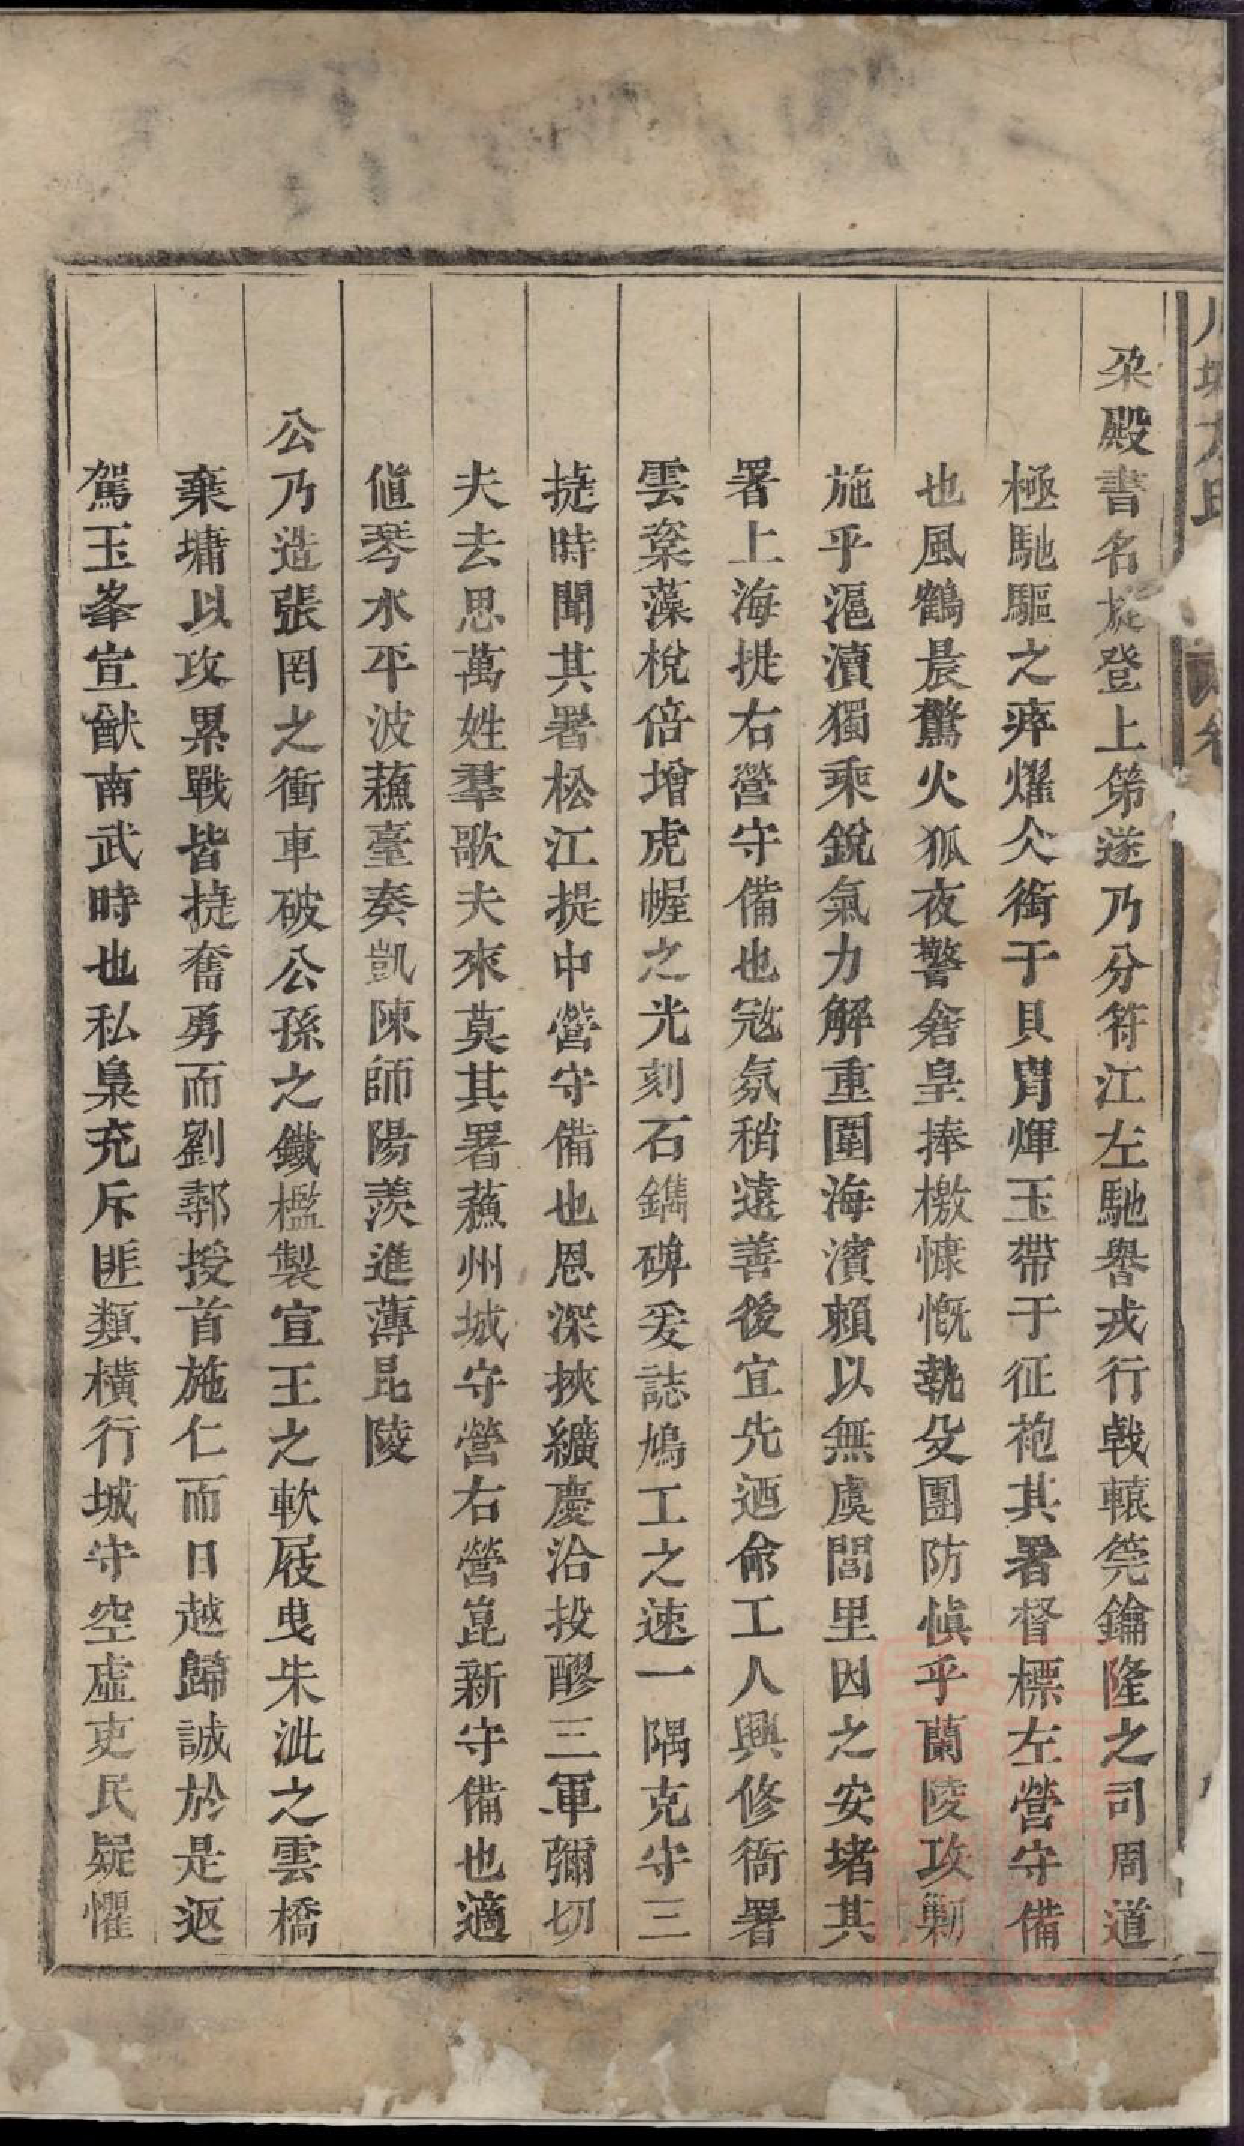 朶殿書名旋登上第遂乃分符江左馳譽戎行戟轅筦鑰隆之司周道
極馳驅之瘁燿仌衘于貝冑煇玉帶于征袍其署督標左營守備
也風鶴晨驚火狐夜警倉皇捧檄慷慨執殳團防慎乎蘭陵攻勦
施乎滬瀆獨乘銳氣力解重圍海濱賴以無虞閭里因之安堵其
署上海提右營守備也冦氛稍遠善後宜先迺命工人興修衙署
雲楶藻梲倍增虎幄之光刻石鐫碑爰誌鳩工之速一隅克守三
捷時聞其署松江提中營守備也恩深挾纊慶洽投醪三軍彌切
夫去思萬姓羣歌夫來莫其署蘇州城守營右營崑新守備也適
値琴水平波蘇臺奏凱陳師陽羨進薄昆陵
公乃造張罔之衝車破公孫之鐵檻製宣王之軟屐曳朱泚之雲橋
棄墉以攻累戰皆捷奮勇而劉鄩授首施仁而日越歸誠於是返
駕玉峯宣猷南武時也私梟充斥匪類橫行城守空虛吏民疑懼